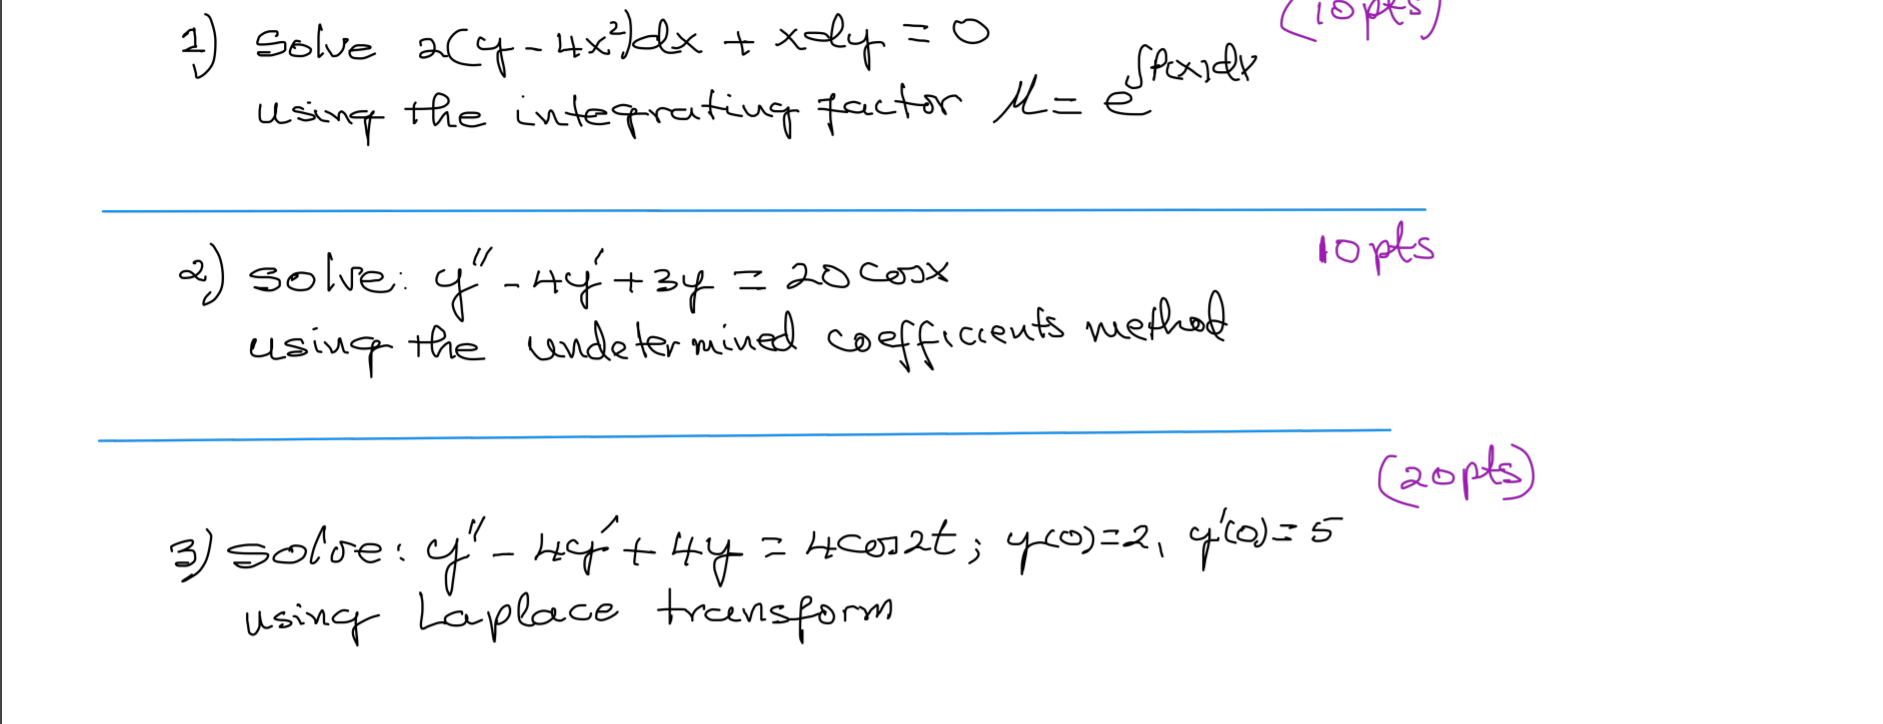 (10pts)
1) Solve 2(y-4x²)dx + xdy = 0
using the integrating factor μ = e^∫P(x)dx
10pts
2) solve: y'' - 4y' + 3y = 20cosx
using the undetermined coefficients method
(20pts)
3) solve: y'' - 4y' + 4y = 4cos2t; y(0)=2, y'(0)=5
using Laplace transform